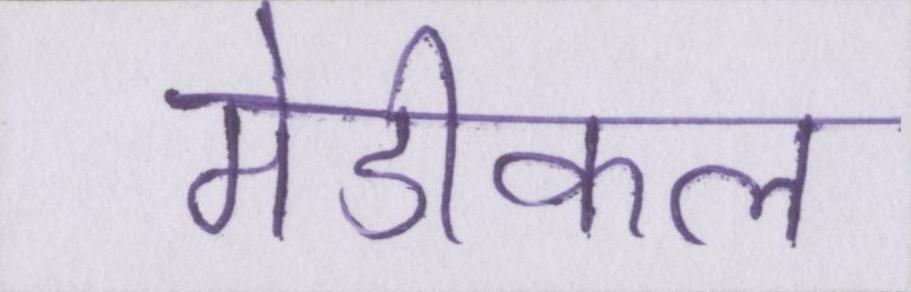 मेडीकल